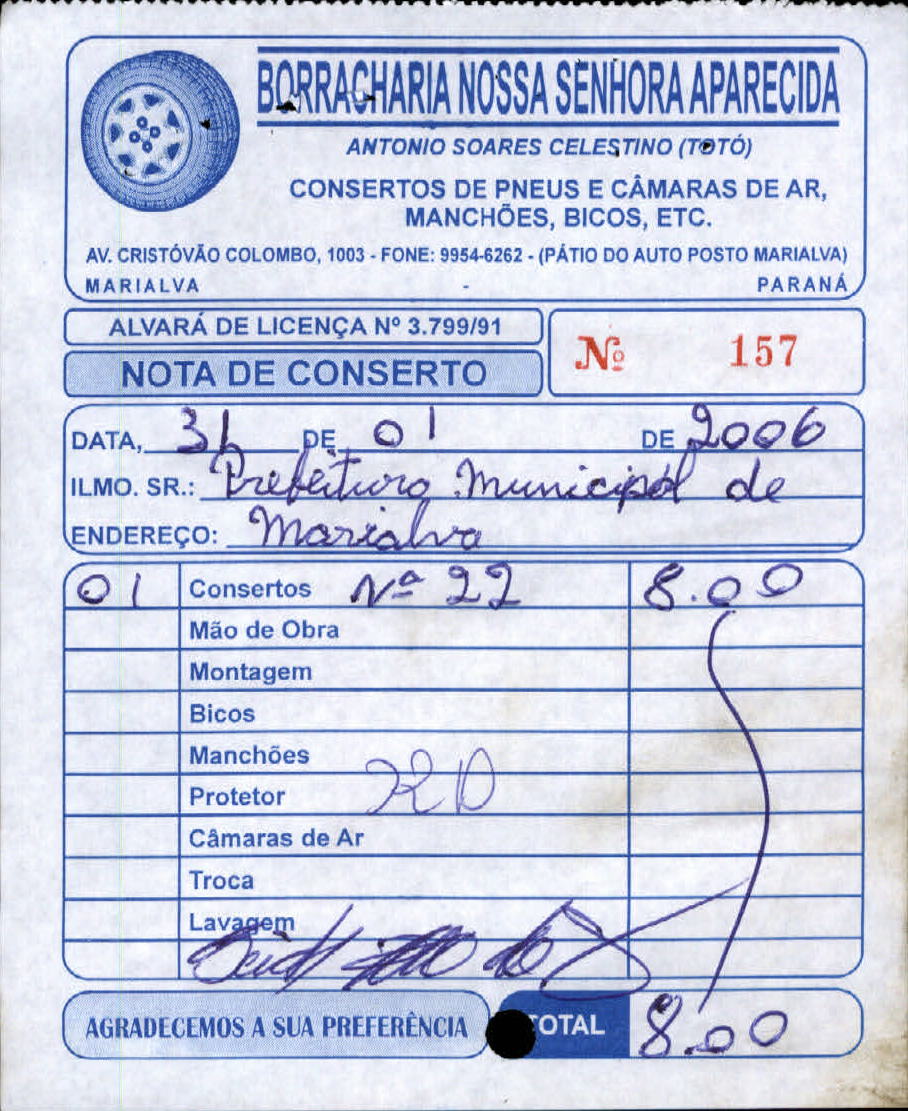 BORRACHARIA NOSSA SENHORA APARECIDA
ANTONIO SOARES CELESTINO (TOTÓ)
CONSERTOS DE PNEUS E CÂMARAS DE AR,
MANCHÕES, BICOS, ETC.
AV. CRISTÓVÃO COLOMBO, 1003 - FONE: 9954-6262 - (PÁTIO DO AUTO POSTO MARIALVA)
MARIALVA - PARANÁ
ALVARÁ DE LICENÇA Nº 3.799/91
NOTA DE CONSERTO
Nº 157
DATA, 31 DE 01 DE 2006
ILMO. SR.: Prefeitura Municipal de
ENDEREÇO: Marialva
01 Consertos Nº 22 8.00
Mão de Obra
Montagem
Bicos
Manchões
Protetor
Câmaras de Ar
Troca
Lavagem
AGRADECEMOS A SUA PREFERÊNCIA
TOTAL 8.00